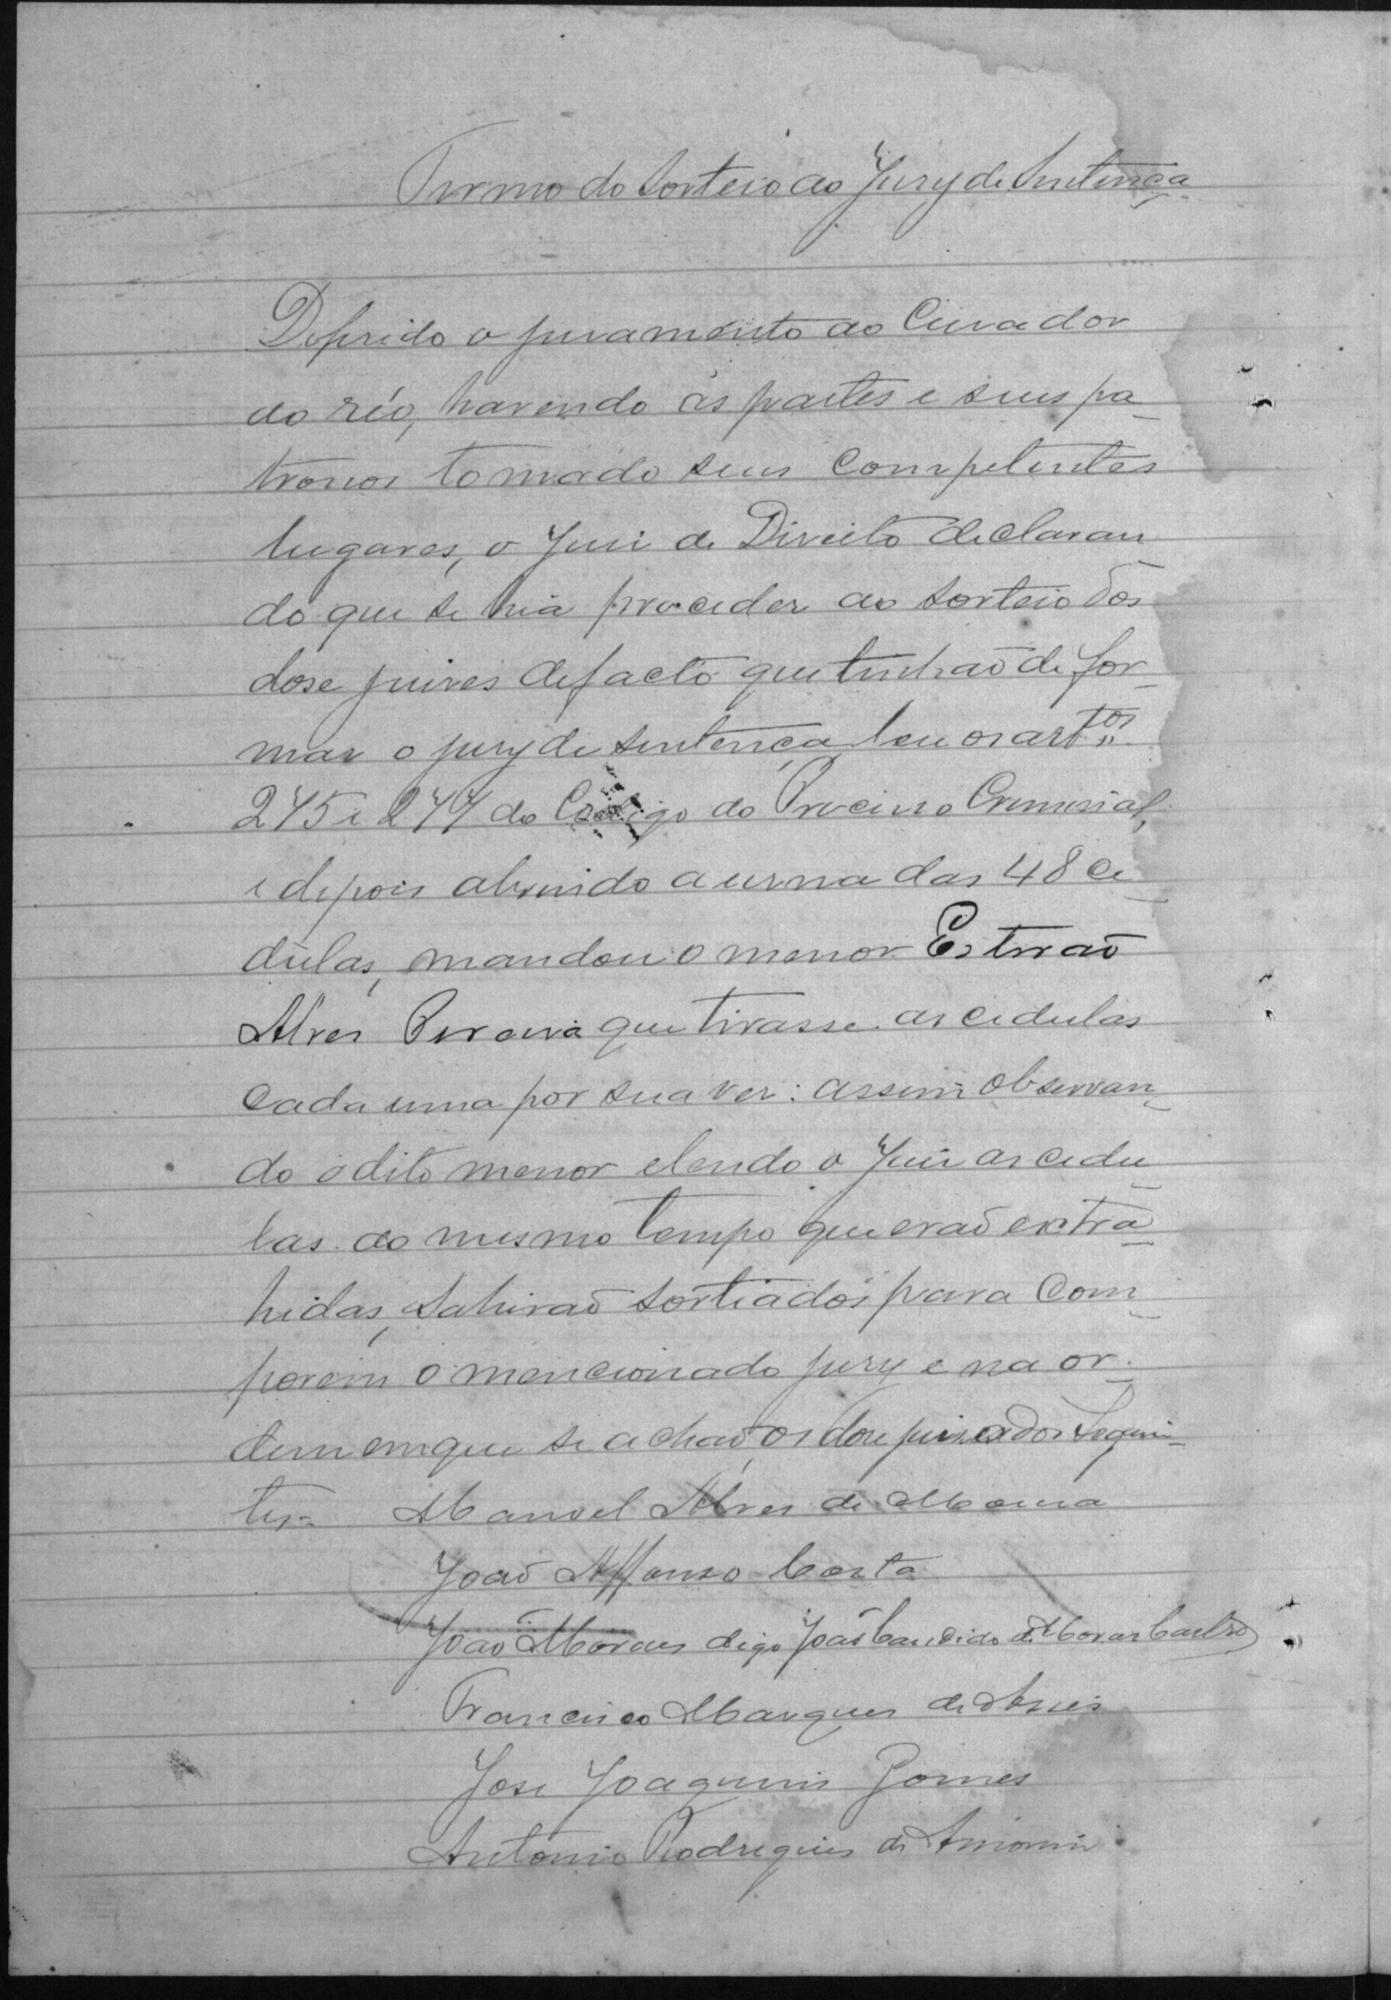 Termo do sorteio ao Jury de Sentença
Diferido o juramento ao Curador
do réo, havendo as partes e seus pa-
tronos tomado seus competentes
lugares, o Juiz de Direito declaran
do que se hia proceder ao sorteio dos
dose juizes de facto que tinhão de for-
mar o jury de sentença, leu os art.os
275 e 277 do Codigo do Processo Criminal,
e depois abrindo a urna das 48 ce-
dulas, mandou o menor Estevão
Alves Pereira que tirasse as cedulas
cada uma por sua vez: assim observan-
do o dito menor e lendo o Juiz as cedu-
las ao mesmo tempo que erão extra-
hidas, sahirão sortiados para com-
porem o mencionado jury e na or-
dem em que se achão, os dose jurados seguin-
tes- Manoel Alves de Moura
João Affonso Costa
João Moraes digo João Candido de Moraes Castro
Francisco Marques de Assis
Jose Joaquim Gomes
Antonio Rodrigues de Amorim